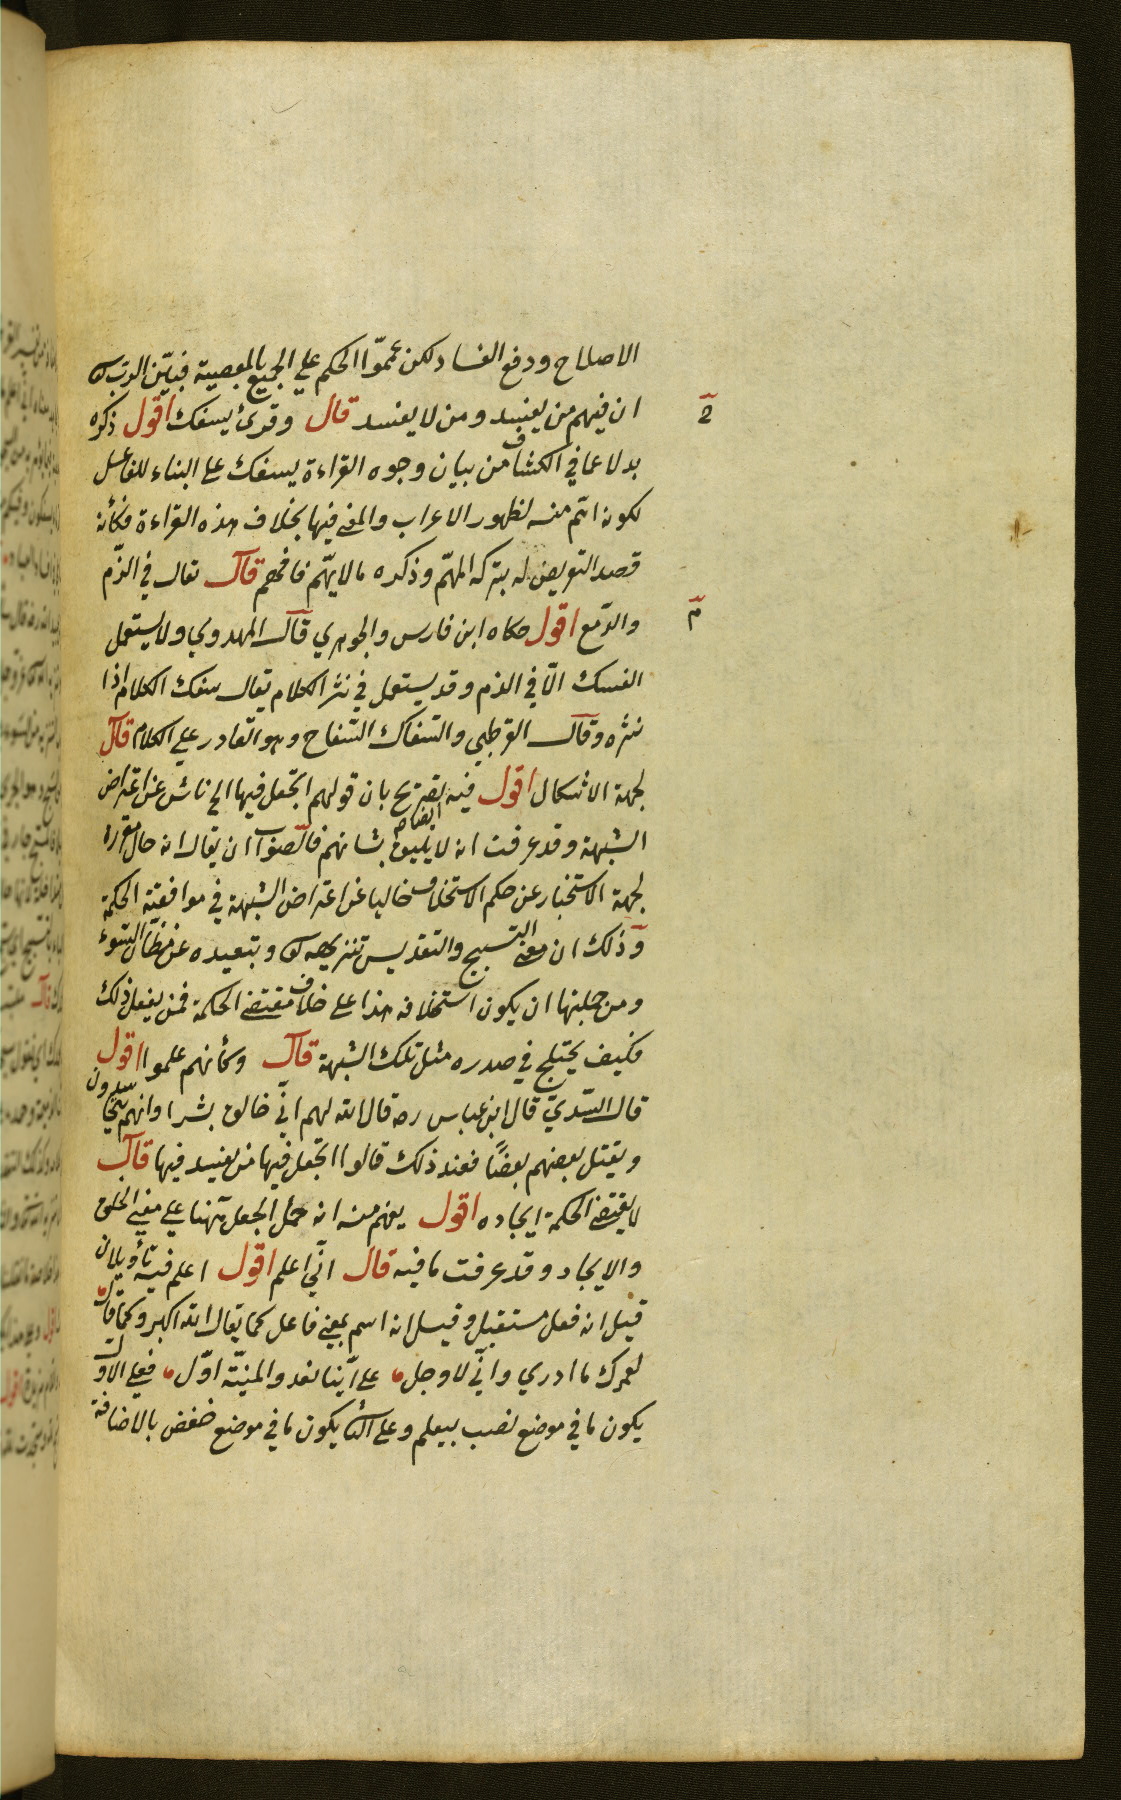 الاصلاح ودفع الفساد لكن عمموا الحكم علي الجميع بالمعصية فبين الرب لهم
ان فيهم من يفسد ومن لا يفسد قال وقرئ يسفك اقول ذكره
بدلا عما في الكشاف من بيان وجوه القراءة يسفك علي البناء للفاعل
لكونه اتم منه لظهور الاعراب والمعني فيها بخلاف هذه القراءة فكأنه
قصد التعريض له بتركه المهم وذكره ما لا يهم فافهم قال يقال في الذم
والدمع اقول حكاه ابن فارس والجوهري قال المهدوي ولا يستعمل
السفك الا في الدم وقد يستعمل في نثر الكلام يقال سفك الكلام اذا
نثره وقال القرطبي والسفاك السفاح وهو القادر علي الكلام قال
لجهة الاشكال اقول فيه تصريح بان قولهم اتجعل فيها الخ ناش عن اعتراض
الشبهة وقد عرفت انه لا يليق ايضا بشانهم فالصواب ان يقال انه حال مقررة
لجهة الاستخبار عن حكم الاستخلاف خاليا عن اعتراض الشبهة في موافقته الحكمة
وذلك ان معني التسبيح والتقديس تنزيهه وتبعيده عن مظان السوء
ومن جملتها ان يكون استخلافه هذا علي خلاف مقتضي الحكمة فمن يفعل ذلك
فكيف يختلج في صدره مثل تلك الشبهة قال وكأنهم علموا اقول
قال السدي قال ابن عباس رضه قال الله لهم اني خالق بشرا وانهم يتحاسدون
ويقتل بعضهم بعضا فعند ذلك قالوا اتجعل فيها من يفسد فيها قال
لا يقتضي الحكمة ايجاده اقول يفهم منه انه حمل الجعل ههنا علي معني الخلق
والايجاد وقد عرفت ما فيه قال اني اعلم اقول اعلم فيه تأويلان
قيل انه فعل مستقبل وقيل انه اسم بمعني فاعل كما يقال الله اكبر وكما قال
لعمرك ما ادري واني لاوجل علي اينا تعدو المنية اول فعلي الاول
يكون ما في موضع نصب بيعلم وعلي الثا يكون ما في موضع خفض بالاضافة